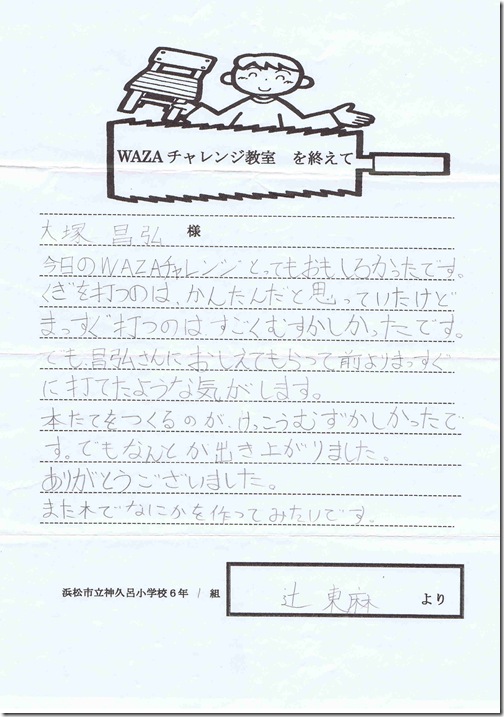 WAZAチャレンジ教室 を終えて
大塚 昌弘 様
今日のWAZAチャレンジとってもおもしろかったです。
くぎを打つのは、かんたんだと思っていたけど
まっすぐ打つのはすごくむずかしかったです。
でも、昌弘さんにおしえてもらって前よりまっすぐ
に打てたような気がします。
本たてをつくるのが、けっこうむずかしかったで
す。でもなんとか出き上がりました。
ありがとうございました。
また木でなにかを作ってみたいです。
浜松市立神久呂小学校6年 1 組 辻 東麻 より